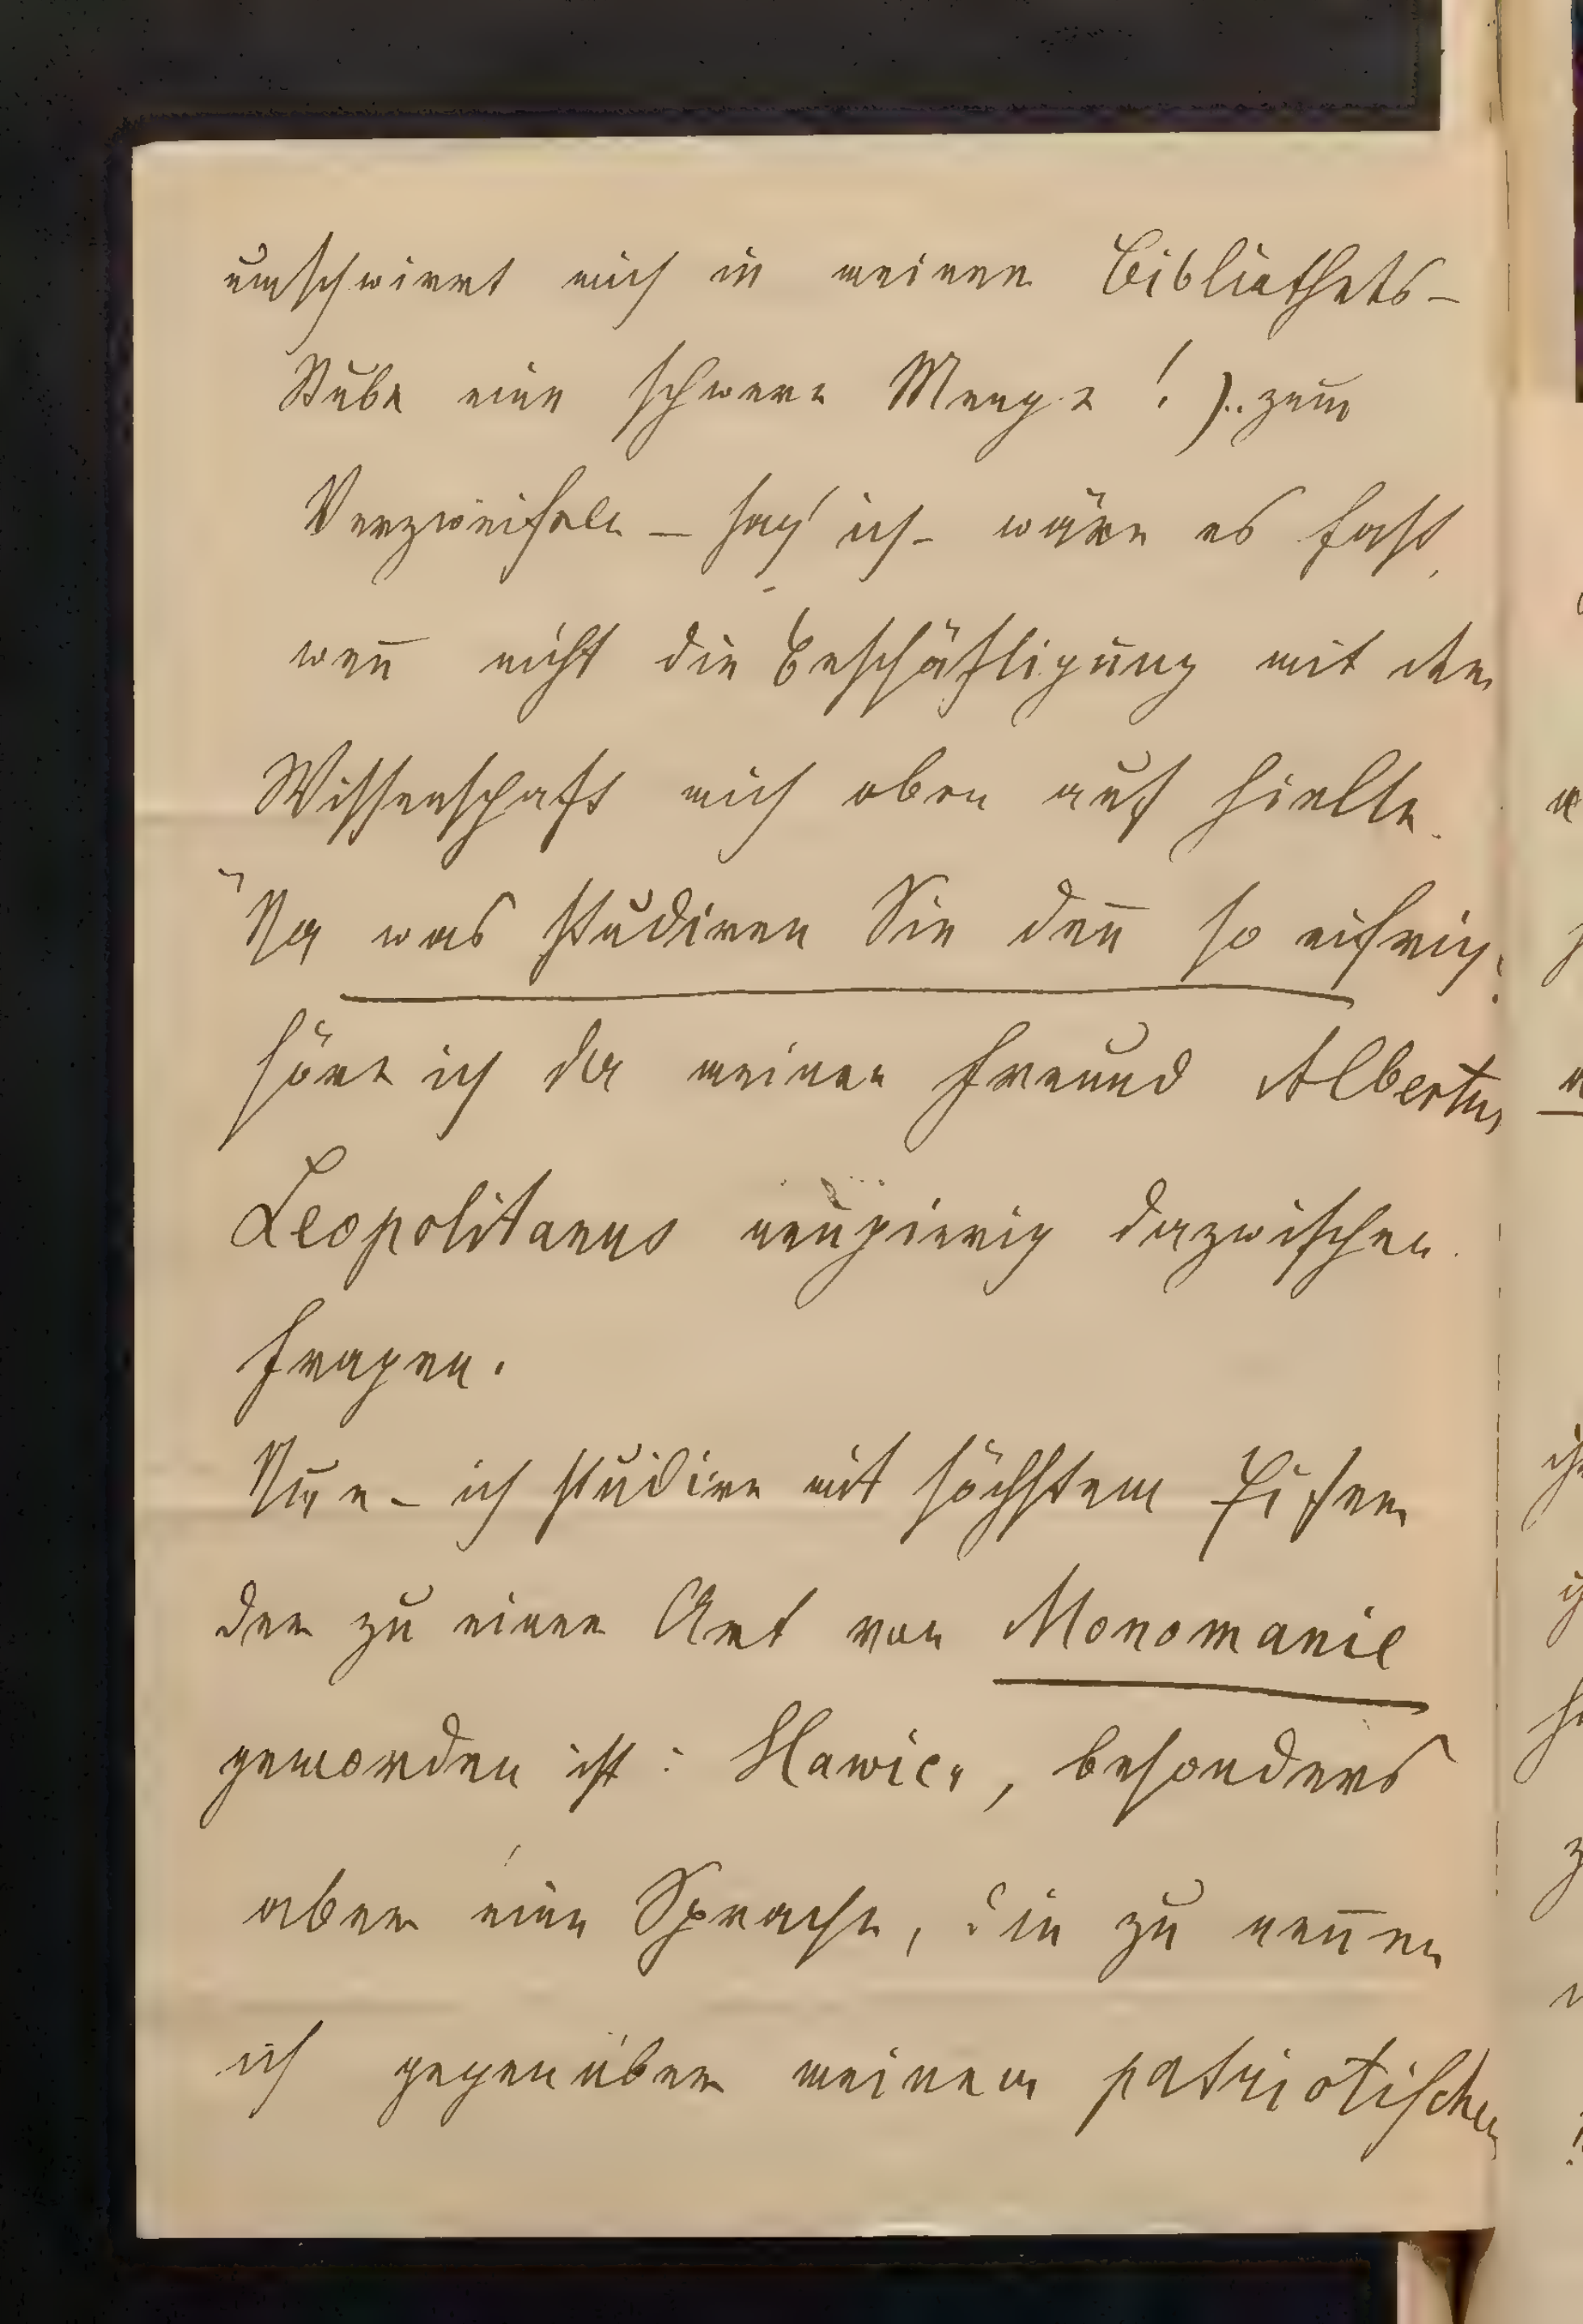 umschwirrt mich in meiner Bibliotheks-
Stube eine schwere Menge!).. zum
Verzweifeln – sag' ich – wäre es fast,
weñ nicht die Beschäftigung mit der
Wissenschaft mich oben auf hielte.
"Na was studiren Sie deñ so eifrig?
höre ich da meinen Freund Albertus
Leopolitanus neugierig dazwischen
fragen.
Nun – ich studire mit höchstem Eifer
der zu einer Art von Monomanie
geworden ist: Slawica, besonders
aber eine Sprache, die zu neñen
ich gegenüber meinem patriotischen